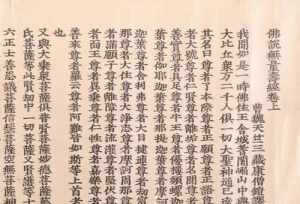 佛說無量壽經卷上
曹魏天竺三藏康僧鎧譯
我聞如是一時佛住王舍城耆闍崛山中與
大比丘眾萬二千人俱一切大聖神通已達
其名曰尊者了本際尊者正願尊者正語尊
者大號尊者仁賢尊者離垢尊者名聞尊者
善實尊者具足尊者牛王尊者優樓頻蠡迦
葉尊者伽耶迦葉尊者那提迦葉尊者摩訶
迦葉尊者舍利弗尊者大目揵連尊者劫賓
那尊者大住尊者大淨志尊者摩訶周那尊
者滿願子尊者離障尊者流灌尊者堅伏尊
者面王尊者異乘尊者仁性尊者嘉樂尊者
善來尊者羅云尊者阿難皆如斯等上首者
也
又與大乘眾菩薩俱普賢菩薩妙德菩薩慈
氏菩薩等此賢劫中一切菩薩又賢護等十
六正士善思議菩薩信慧菩薩空無菩薩神